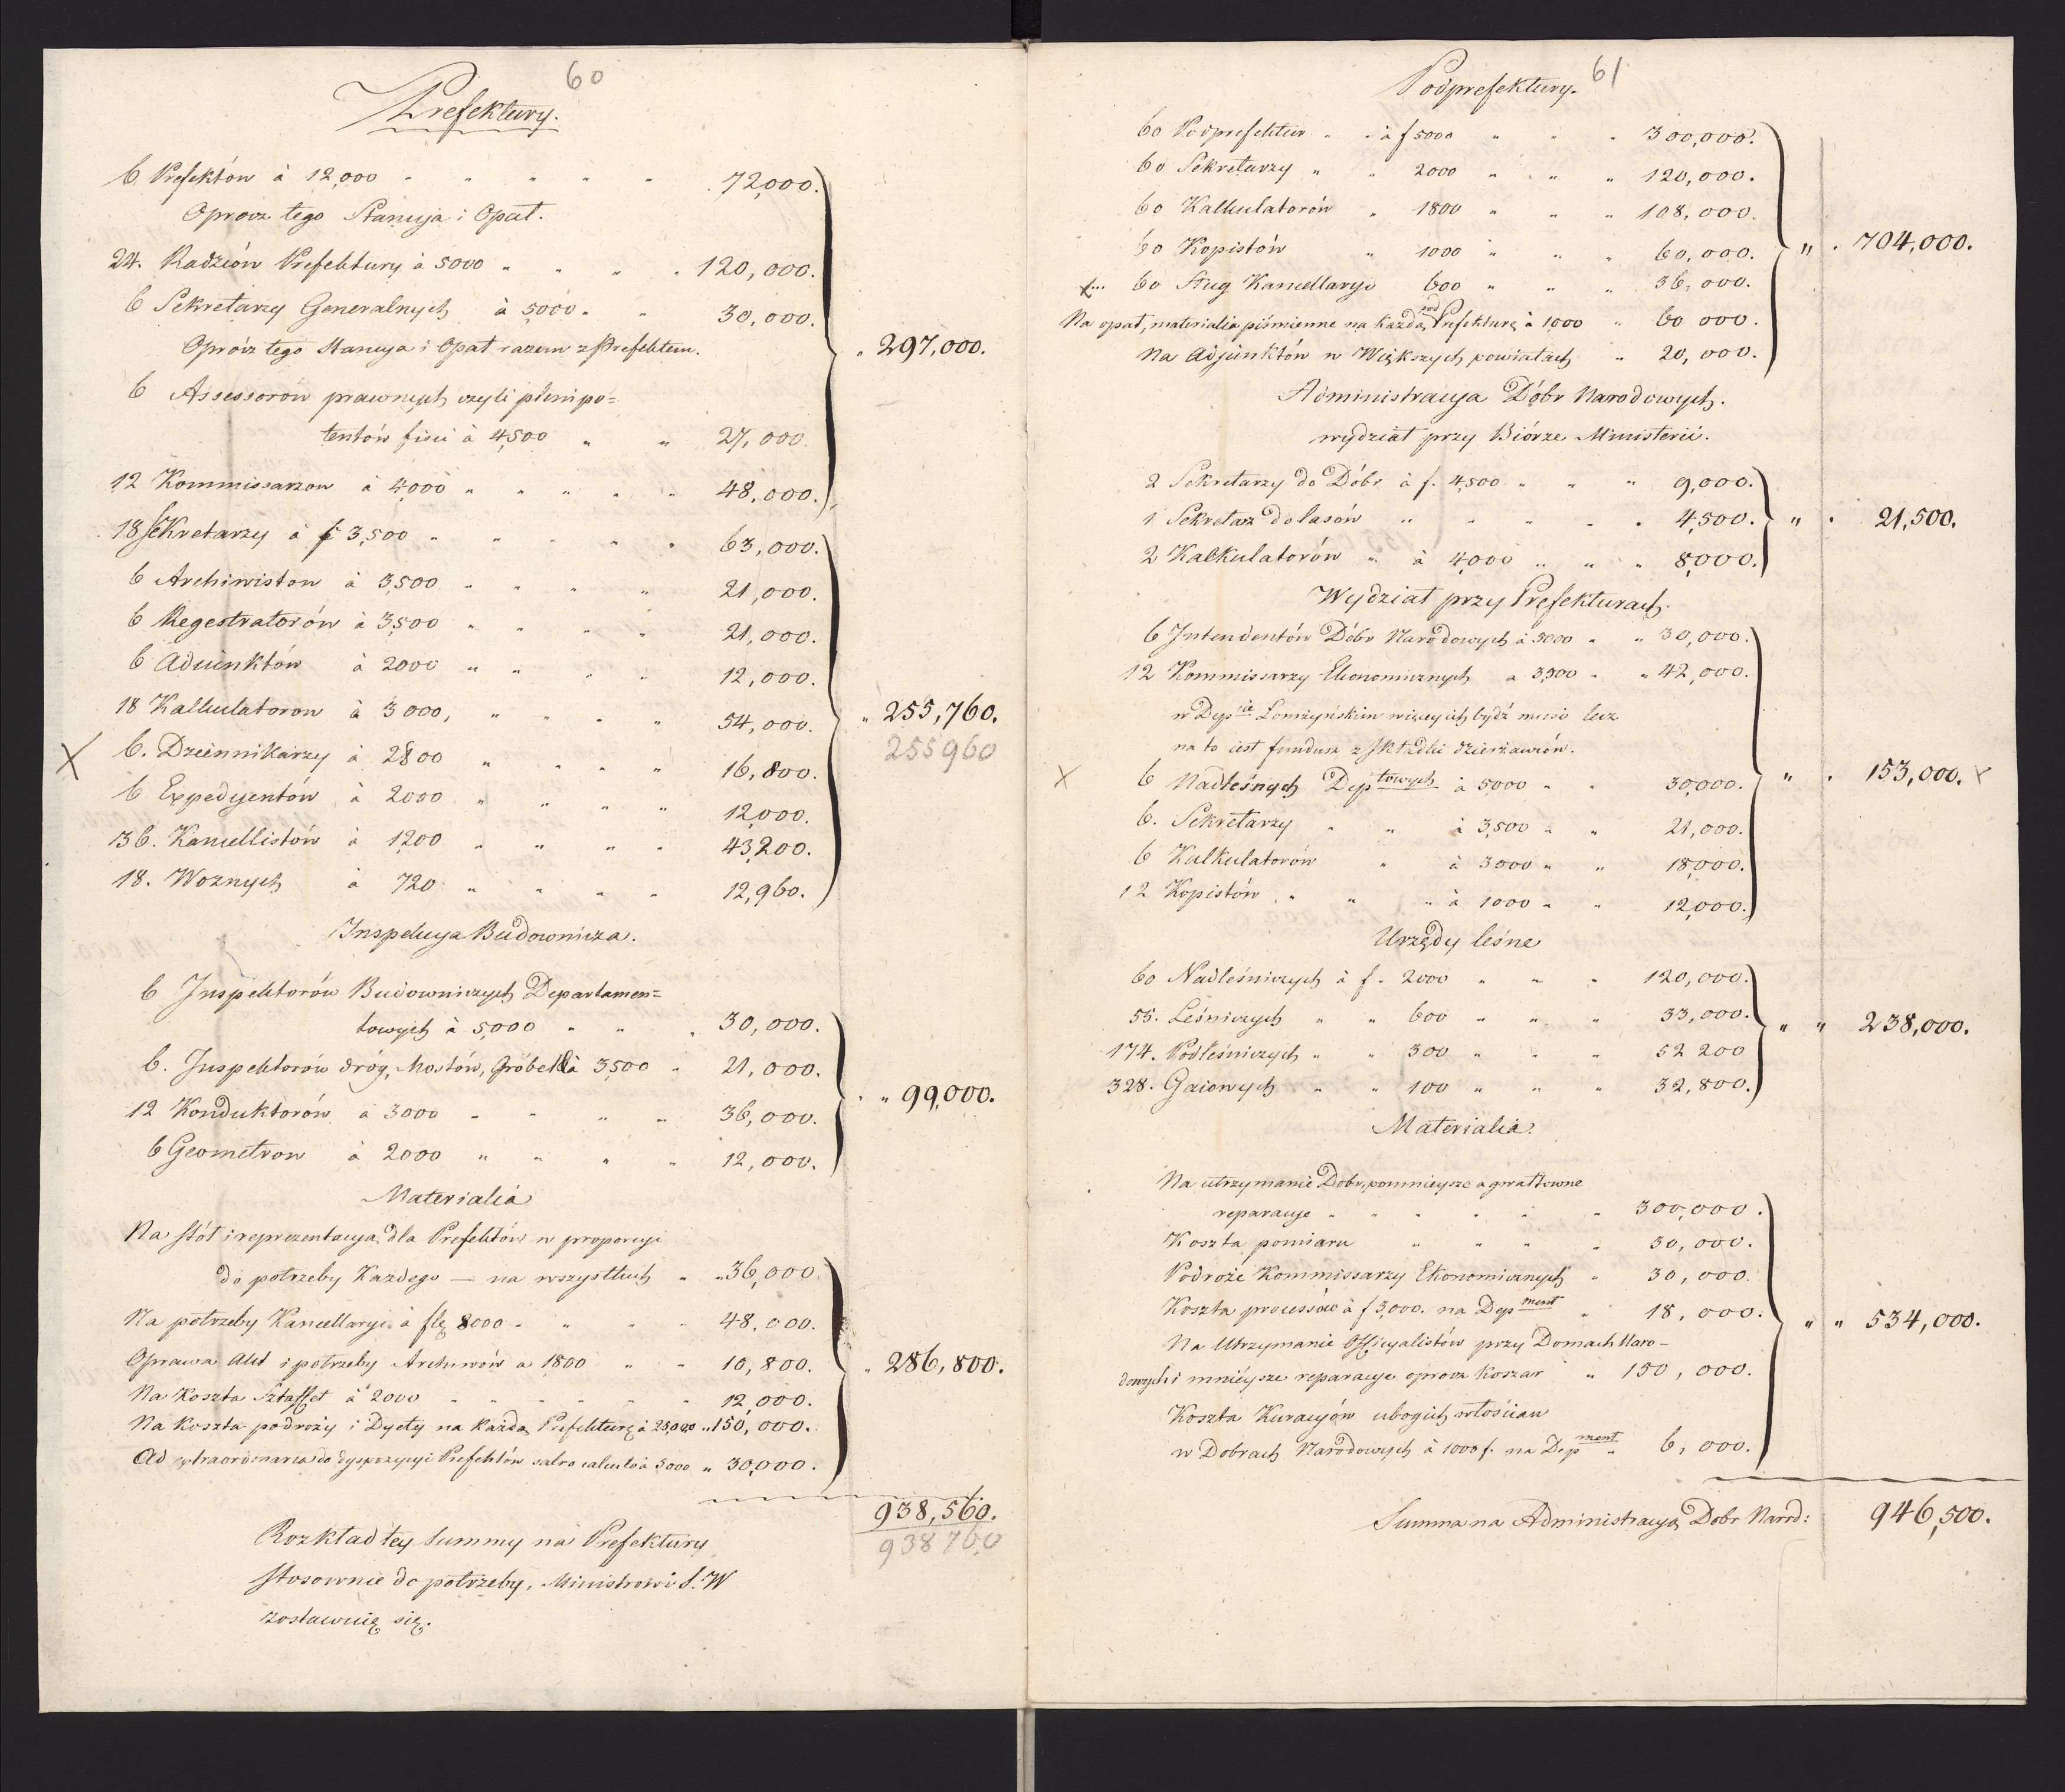 60
Prefektury.
6 Prefektów à 12,000 " " " " " 72,000.
Oprocz tego Stancyja i Opał.
24. Radzców Prefektury à 5000 " " " " 120,000.
6 Sekretarzy Generalnych à 5000 " " 30,000.
Oprócz tego Stancya i Opał razem z Prefektem.
297,000.
6 Assessorów prawnych czyli plenipo=
tentów fisci à 4,500 " " 27,000.
12 Kommissarzow à 4,000 " " " " " 48,000.
18 Sekretarzy à f 3,500 " " " " " 63,000.
6 Archiwistow à 3,500 " " " " 21,000.
6 Regestratorów à 3,500 " " " " 21,000.
6 Adiunktów à 2000 " " " " 12,000.
18 Kalkulatorow à 3000, " " " " 54,000.
" 255,760.
255960
X 6. Dziennikarzy à 2800 " " " " 16,800.
6 Expedyentów à 2000 " " " " 12,000.
36. Kancellistów à 1,200 " " " " 43,200.
18. Woznych à 720 " " " " 12,960.
Inspekcya Budownicza.
6 Inspektorów Budowniczych Departamen=
towych à 5,000 " " " 30,000.
6. Inspektorów dróg, Mostów, Grobel à 3,500 " 21,000.
" " 99,000.
12 Konduktorów à 3000 " " " " 36,000.
6 Geometrow à 2000 " " " " 12,000.
Materialia
Na stół i reprezentacyą dla Prefektów w proporcyi
do potrzeby Każdego — na wszystkich " " 36,000
Na potrzeby Kancellaryi à 8000 " " " " 48,000.
Oprawa Akt i potrzeby Archiwów a 1800 " " 10,800.
" 286,800.
Na Koszta Sztaffet à 2000 " " " " " 12,000.
Na Koszta podroży i Dyety na Każdą Prefekturę à 25,000 " 150,000.
Ad extraordinaria do dyspozycyi Prefektów salvo calculo à 5000 " 30,000.
938,560.
938760
Rozkład tey Summy na Prefektury
stosownie do potrzeby, Ministrowi S. W
zostawuię się.
61
Podprefektury.
60 Podprefektur " " à f 5000 " " " 300,000.
60 Sekretarzy " " 2000 " " " 120,000.
60 Kalkulatorów " 1800 " " " 108,000.
60 Kopistów " 1000 " " " 60,000.
" . 704,000.
60 Sług Kancellaryi 600 " " " 36,000.
Na opał, materialia piśmienne na każdą pod Prefekturę à 1,000 " 60 000.
Na Adjunktów w Większych powiatach " 20,000.
Administracya Dóbr Narodowych.
wydział przy Biórze Ministerii.
2 Sekretarzy do Dóbr à f. 4,500 " " " 9,000.
1 Sekretarz do lasów " " " " " 4,500.
" . 21,500.
2 Kalkulatorów " à 4,000 " " " 8,000.
Wydział przy Prefekturach.
6 Intendentów Dóbr Narodowych à 5000 " " 30,000.
12 Kommissarzy Ekonomicznych a 3,500 " " 42,000.
w Depcie Łomżyńskim więcey ich bydź musi lecz
na to iest fundusz z składki dzierżawców.
X 6 Nadleśnych Deptowych à 5000 " " 30,000.
" . 153,000. X
6. Sekretarzy " " à 3,500 " " 21,000.
6 Kalkulatorów " à 3000 " " 18,000.
12 Kopistów " " " à 1000 " " 12,000.
Urzędy leśne
60 Nadleśniczych à f. 2000 " " " 120,000.
55. Leśniczych " " 600 " " " 33,000.
" " 238,000.
174. Podleśniczych " " 300 " " " 52 200
328. Gaiowych " " 100 " " " 32,800.
Materialia.
Na utrzymanie Dobr, pomnieysze a gwałtowne
reparacye " " " " " " 300,000.
Koszta pomiaru " " " " 30,000.
Podroże Kommissarzy Ekonomicznych " 30,000.
Koszta processów à f 3,000. na Depment " 18,000.
" " 534,000.
Na Utrzymanie Officyalistów przy Domach Naro-
dowych i mnieysze reparacye oprocz Koszar " 150,000.
Koszta Kuracyów ubogich włościan
w Dobrach Narodowych à 1000 f. na Depment " 6,000.
Summa na Administracyą Dobr Narod: 946,500.